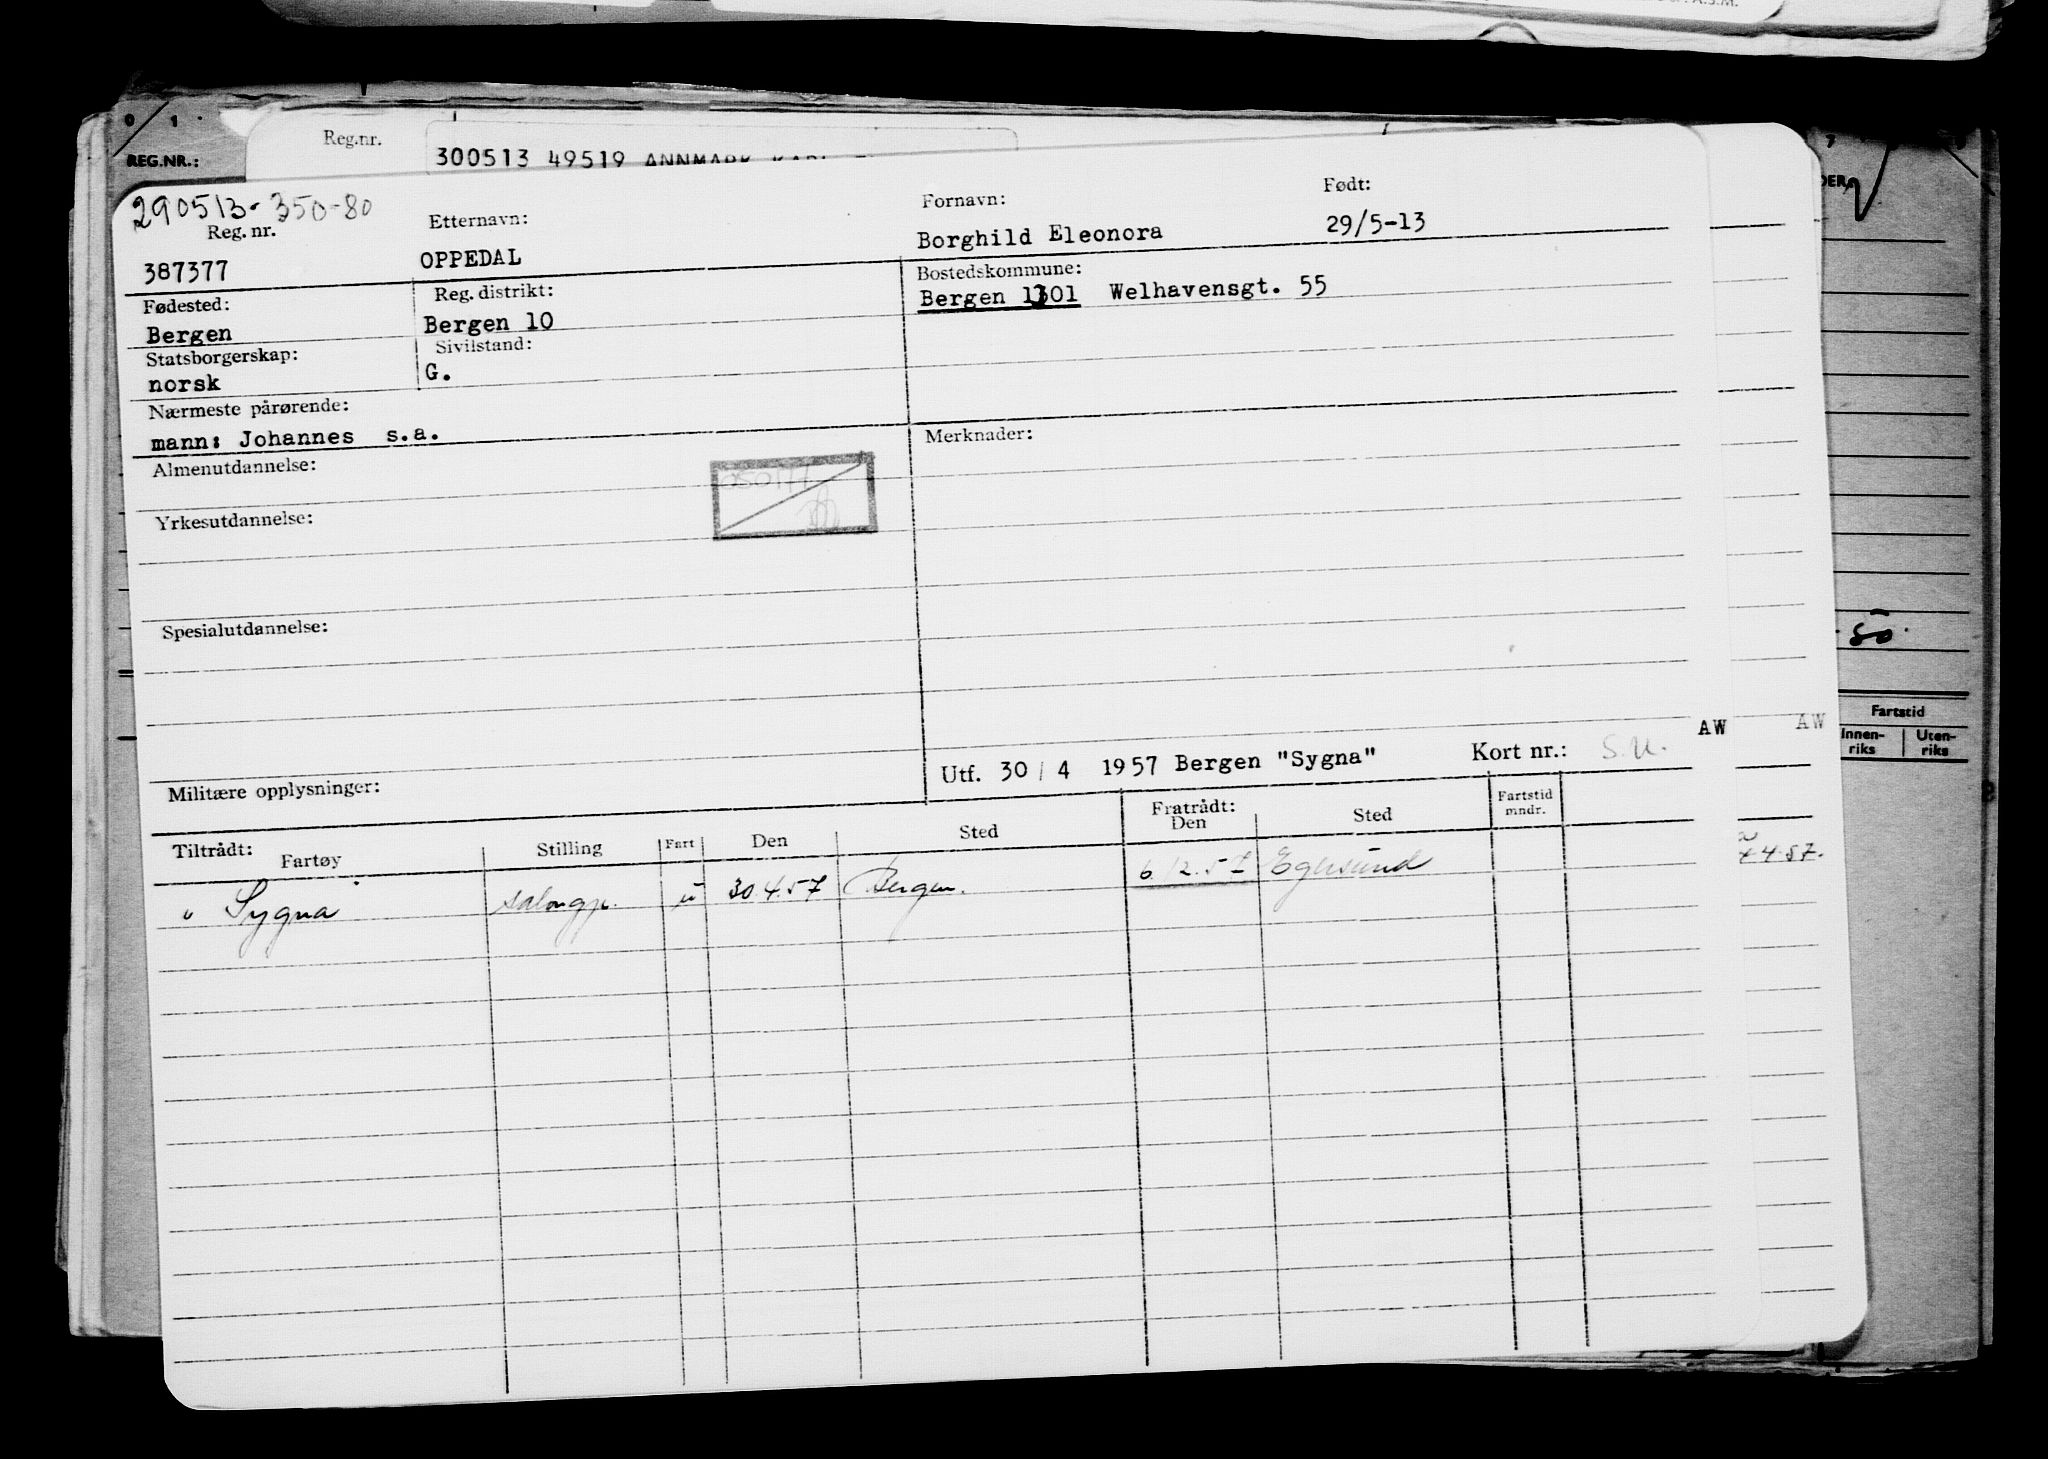 A.S.M.
0 1
REG.NR.:
Reg.nr.
300513 49519 ANNMARK KARL
290513-350-80
Reg. nr.
Etternavn:
Fornavn:
Født:
387377
OPPEDAL
Borghild Eleonora
29/5-13
Fødested:
Reg. distrikt:
Bostedskommune:
Bergen
Bergen 10
Bergen 1301 Welhavensgt. 55
Statsborgerskap:
Sivilstand:
norsk
G.
Nærmeste pårørende:
mann: Johannes s.a.
Merknader:
Almenutdannelse:
050177
Yrkesutdannelse:
Spesialutdannelse:
50.
AW
AW
Fartstid
Innen-
riks
Uten-
riks
Militære opplysninger:
Utf. 30 / 4 1957 Bergen "Sygna"
Kort nr.: S.U.
Tiltrådt:
Fartøy
Stilling
Fart
Den
Sted
Fratrådt:
Den
Sted
Fartstid
mndr.
" Sygna "
salongp.
u
30.4.57
Bergen.
6.12.57
Egersund
4.57.